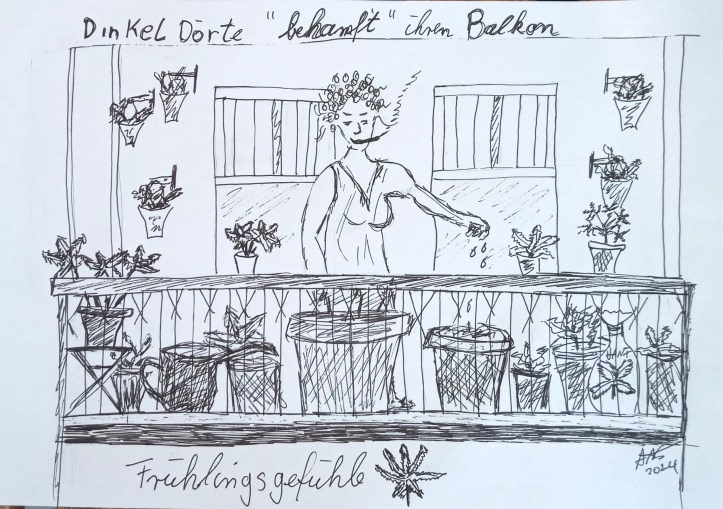 Dinkel Dörte "behanft" ihren Balkon
HANF
Frühlingsgefühle
2024